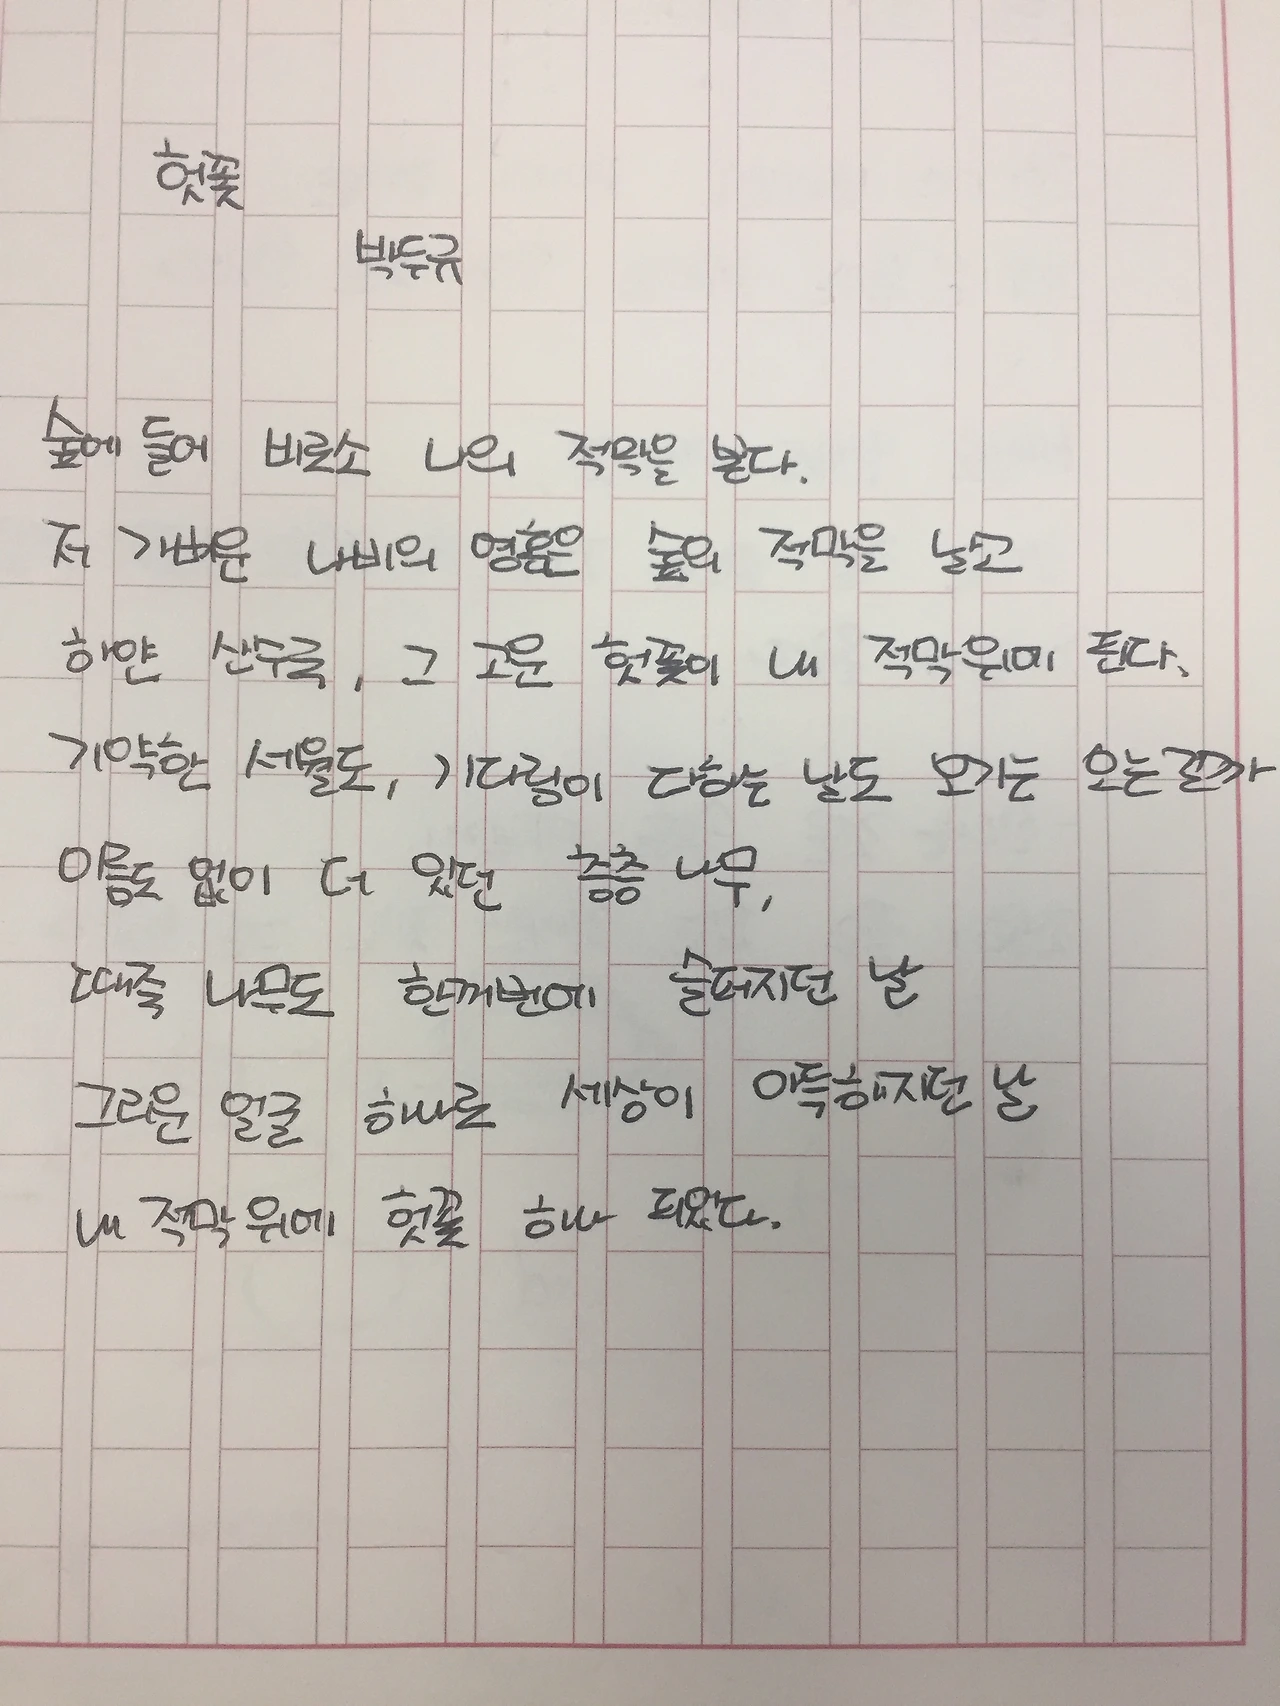 헛꽃
박두규
숲에 들어 비로소 나의 적막을 본다.
저 가벼운 나비의 영혼은 숲의 적막을 날고
하얀 산수국, 그 고운 헛꽃이 내 적막위에 핀다.
기약한 세월도, 기다림이 다하는 날도 오기는 오는걸까
이름도 없이 더 있던 층층 나무,
때죽 나무도 한꺼번에 슬퍼지던 날
그리운 얼굴 하나로 세상이 아득해지던 날
내 적막 위에 헛꽃 하나 피었다.